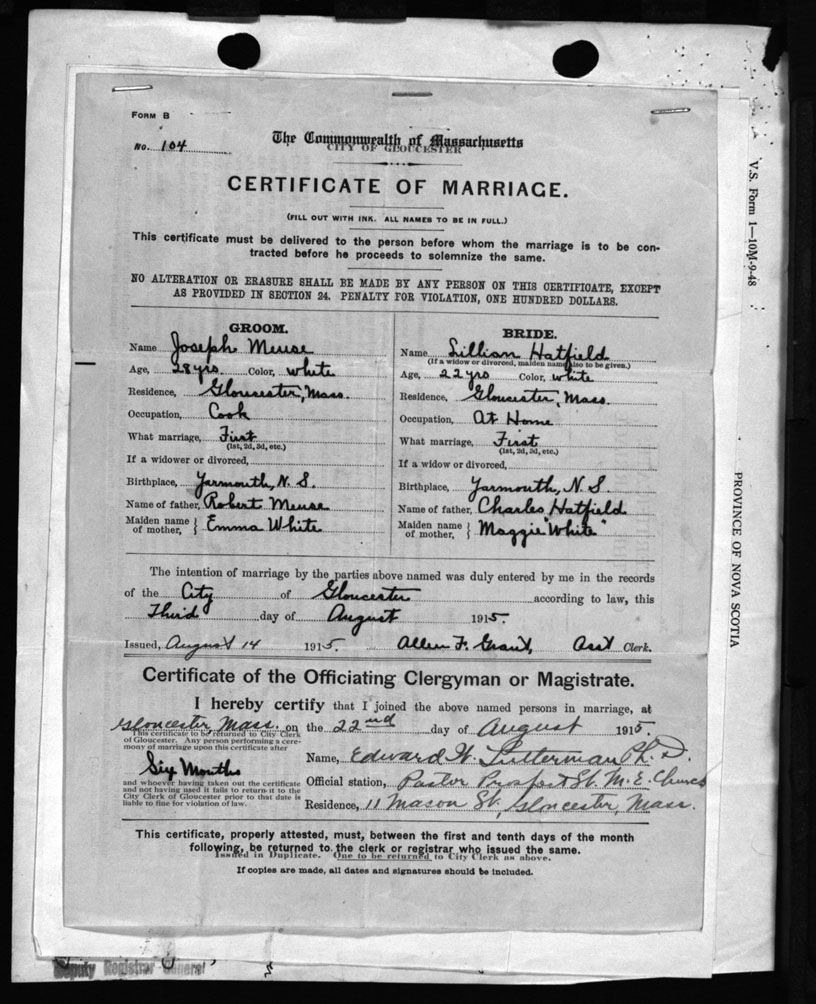 FORM B
No. 104
The Commonwealth of Massachusetts
CITY OF GLOUCESTER
CERTIFICATE OF MARRIAGE.
(FILL OUT WITH INK. ALL NAMES TO BE IN FULL.)
This certificate must be delivered to the person before whom the marriage is to be con-
tracted before he proceeds to solemnize the same.
NO ALTERATION OR ERASURE SHALL BE MADE BY ANY PERSON ON THIS CERTIFICATE, EXCEPT
AS PROVIDED IN SECTION 24. PENALTY FOR VIOLATION, ONE HUNDRED DOLLARS.
GROOM.
Name Joseph Meuse
Age, 28 yrs. Color, White
Residence, Gloucester, Mass.
Occupation, Cook
What marriage, First
(1st, 2d, 3d, etc.)
If a widower or divorced,
Birthplace, Yarmouth, N. S.
Name of father, Robert Meuse
Maiden name of mother, } Emma White
BRIDE.
Name Lillian Hatfield
(If a widow or divorced, maiden name also to be given.)
Age, 22 yrs Color, White
Residence, Gloucester, Mass.
Occupation, At Home
What marriage, First
(1st, 2d, 3d, etc.)
If a widow or divorced,
Birthplace, Yarmouth, N. S
Name of father, Charles Hatfield
Maiden name of mother, } Maggie "White"
The intention of marriage by the parties above named was duly entered by me in the records
of the City of Gloucester according to law, this
Third day of August 1915.
Issued, August 14 1915. Allen F. Grant, Asst Clerk.
Certificate of the Officiating Clergyman or Magistrate.
I hereby certify that I joined the above named persons in marriage, at
Gloucester, Mass. on the 22nd day of August 1915.
This certificate to be returned to City Clerk
of Gloucester. Any person performing a cere-
mony of marriage upon this certificate after
Six Months
and whoever having taken out the certificate
and not having used it fails to return it to the
City Clerk of Gloucester prior to that date is
liable to fine for violation of law.
Name, Edward W. Lutterman Ph. D.
Official station, Pastor Prospect St. M. E. Church
Residence, 11 Mason St., Gloucester, Mass.
This certificate, properly attested, must, between the first and tenth days of the month
following, be returned to the clerk or registrar who issued the same.
Issued in Duplicate. One to be returned to City Clerk as above.
If copies are made, all dates and signatures should be included.
V.S. Form 1—10M-9-48
PROVINCE OF NOVA SCOTIA
Deputy Registrar General